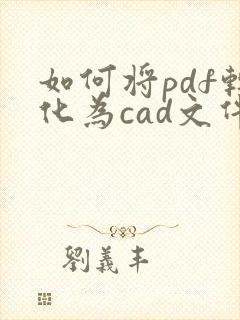 如何将pdf转
化为cad文件
劉義丰